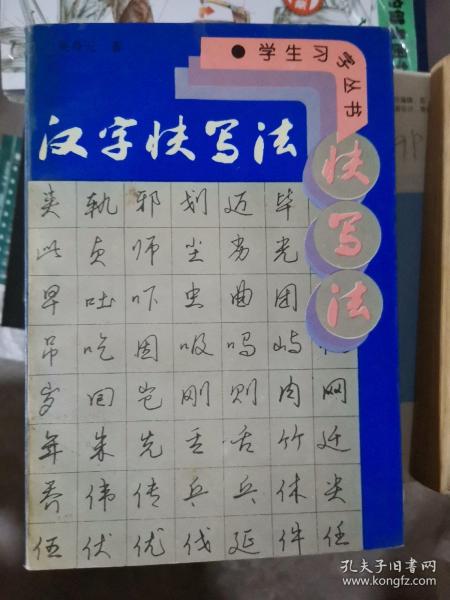 ●学生习字丛书
汉字快写法
快写法
夹 執 邪 划 迈 毕
此 贞 师 尘 劣 光
早 吐 吓 虫 曲 团
吊 吃 因 吸 吗 屿
岁 回 岂 刚 则 肉 网
年 朱 先 丢 舌 竹 迁
乔 伟 传 乒 乓 休
伍 伏 优 伐 延 件 任
孔夫子旧书网
www.kongfz.com